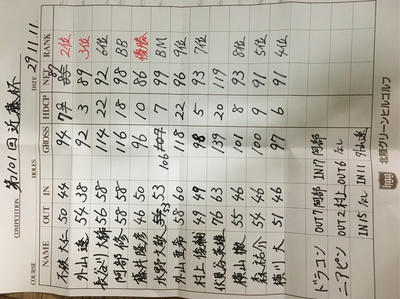 COMPETITION 第101回近藤杯 DATE 29.11.11
COURSE HOLES
NAME OUT IN GROSS HDCP NET RANK
大仁 50 44 94 7 87 2位
外山 達 54 38 92 3 89 3位
長谷川 大輔 56 58 114 22 92 6位
阿部 修 58 58 116 18 98 BB
藤井 隆彦 46 50 96 10 86 優勝
水野 大敬 53 106 7 99 BM
外山 亜希 58 60 118 22 96 9位
村上 俊樹 49 49 98 5 93 7位
英雄 76 63 139 20 119
横山 徹 55 46 101 8 93 8位
森 祐介 54 46 100 9 91 5位
横川 大 51 46 97 6 91 4位
ドラコン OUT7阿部 IN17阿部
ニアピン OUT2村上 OUT6なし IN11外山達
IN15なし
北陸グリーンヒルゴルフ